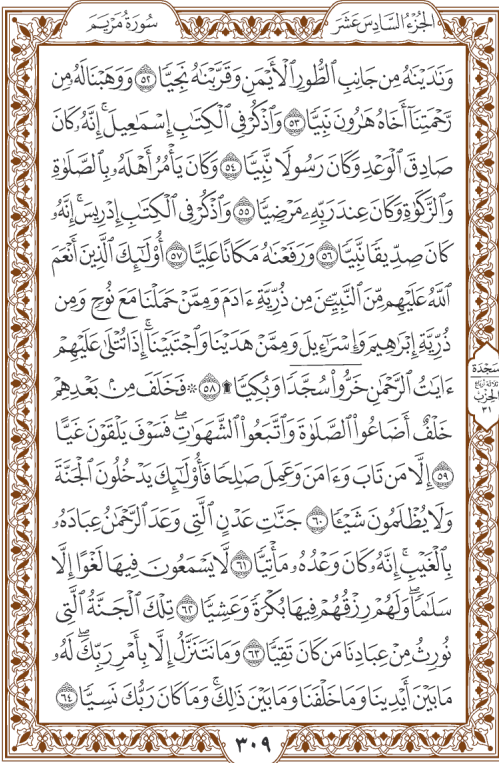 الجزء السادس عشر
سورة مريم
وَنَٰدَيْنَٰهُ مِن جَانِبِ ٱلطُّورِ ٱلْأَيْمَنِ وَقَرَّبْنَٰهُ نَجِيًّا ٥٢ وَوَهَبْنَا لَهُۥ مِن
رَّحْمَتِنَآ أَخَاهُ هَٰرُونَ نَبِيًّا ٥٣ وَٱذْكُرْ فِى ٱلْكِتَٰبِ إِسْمَٰعِيلَ ۚ إِنَّهُۥ كَانَ
صَادِقَ ٱلْوَعْدِ وَكَانَ رَسُولًا نَّبِيًّا ٥٤ وَكَانَ يَأْمُرُ أَهْلَهُۥ بِٱلصَّلَوٰةِ
وَٱلزَّكَوٰةِ وَكَانَ عِندَ رَبِّهِۦ مَرْضِيًّا ٥٥ وَٱذْكُرْ فِى ٱلْكِتَٰبِ إِدْرِيسَ ۚ إِنَّهُۥ
كَانَ صِدِّيقًا نَّبِيًّا ٥٦ وَرَفَعْنَٰهُ مَكَانًا عَلِيًّا ٥٧ أُو۟لَٰٓئِكَ ٱلَّذِينَ أَنْعَمَ
ٱللَّهُ عَلَيْهِم مِّنَ ٱلنَّبِيِّۦنَ مِن ذُرِّيَّةِ ءَادَمَ وَمِمَّنْ حَمَلْنَا مَعَ نُوحٍ وَمِن
ذُرِّيَّةِ إِبْرَٰهِيمَ وَإِسْرَٰٓءِيلَ وَمِمَّنْ هَدَيْنَا وَٱجْتَبَيْنَآ ۚ إِذَا تُتْلَىٰ عَلَيْهِمْ
ءَايَٰتُ ٱلرَّحْمَٰنِ خَرُّوا۟ سُجَّدًا وَبُكِيًّا ۩ ٥٨ ۞ فَخَلَفَ مِنۢ بَعْدِهِمْ
خَلْفٌ أَضَاعُوا۟ ٱلصَّلَوٰةَ وَٱتَّبَعُوا۟ ٱلشَّهَوَٰتِ ۖ فَسَوْفَ يَلْقَوْنَ غَيًّا
٥٩ إِلَّا مَن تَابَ وَءَامَنَ وَعَمِلَ صَٰلِحًا فَأُو۟لَٰٓئِكَ يَدْخُلُونَ ٱلْجَنَّةَ
وَلَا يُظْلَمُونَ شَيْـًٔا ٦٠ جَنَّٰتِ عَدْنٍ ٱلَّتِى وَعَدَ ٱلرَّحْمَٰنُ عِبَادَهُۥ
بِٱلْغَيْبِ ۚ إِنَّهُۥ كَانَ وَعْدُهُۥ مَأْتِيًّا ٦١ لَّا يَسْمَعُونَ فِيهَا لَغْوًا إِلَّا
سَلَٰمًا ۖ وَلَهُمْ رِزْقُهُمْ فِيهَا بُكْرَةً وَعَشِيًّا ٦٢ تِلْكَ ٱلْجَنَّةُ ٱلَّتِى
نُورِثُ مِنْ عِبَادِنَا مَن كَانَ تَقِيًّا ٦٣ وَمَا نَتَنَزَّلُ إِلَّا بِأَمْرِ رَبِّكَ ۖ لَهُۥ
مَا بَيْنَ أَيْدِينَا وَمَا خَلْفَنَا وَمَا بَيْنَ ذَٰلِكَ ۚ وَمَا كَانَ رَبُّكَ نَسِيًّا ٦٤
سجدة
ثلاثة أرباع
الحزب
٣١
٣٠٩